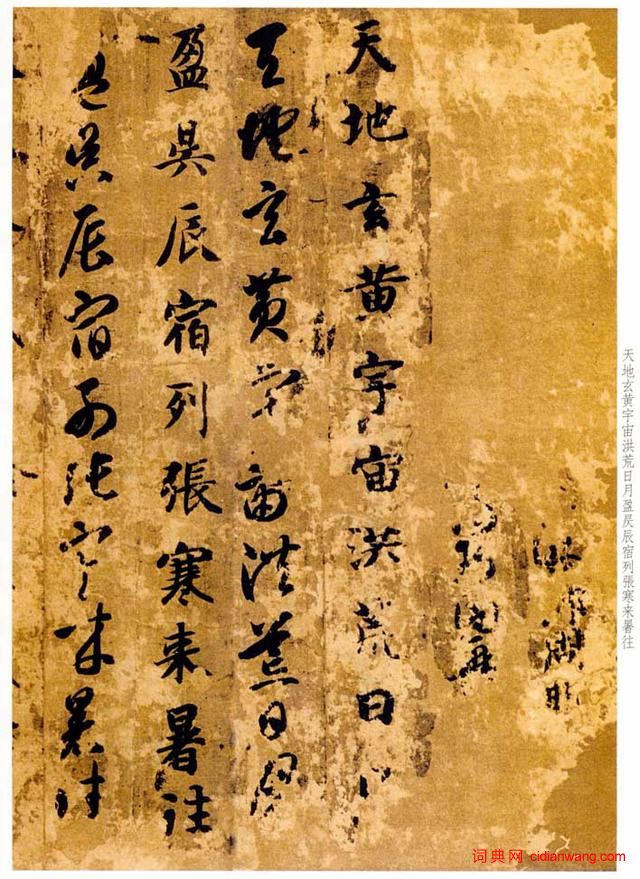 天地玄黄宇宙洪荒日月盈昃辰宿列張寒来暑往
天地玄黄宇宙洪荒日月
天地玄黄宇宙洪荒日月
盈昃辰宿列張寒来暑往
盈昃辰宿列張寒来暑往
词典网 cidianwang.com